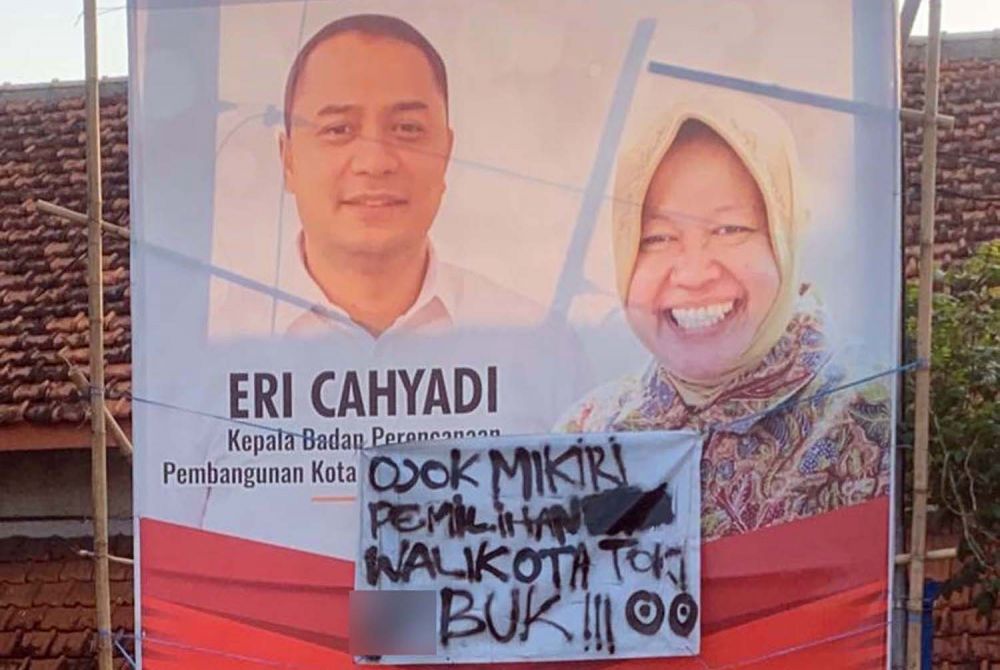 ERI CAHYADI
Kepala Badan Perencanaan
Pembangunan Kota
OJOK MIKIRI
PEMILIHAN
WALIKOTA TOK
BUK!!!